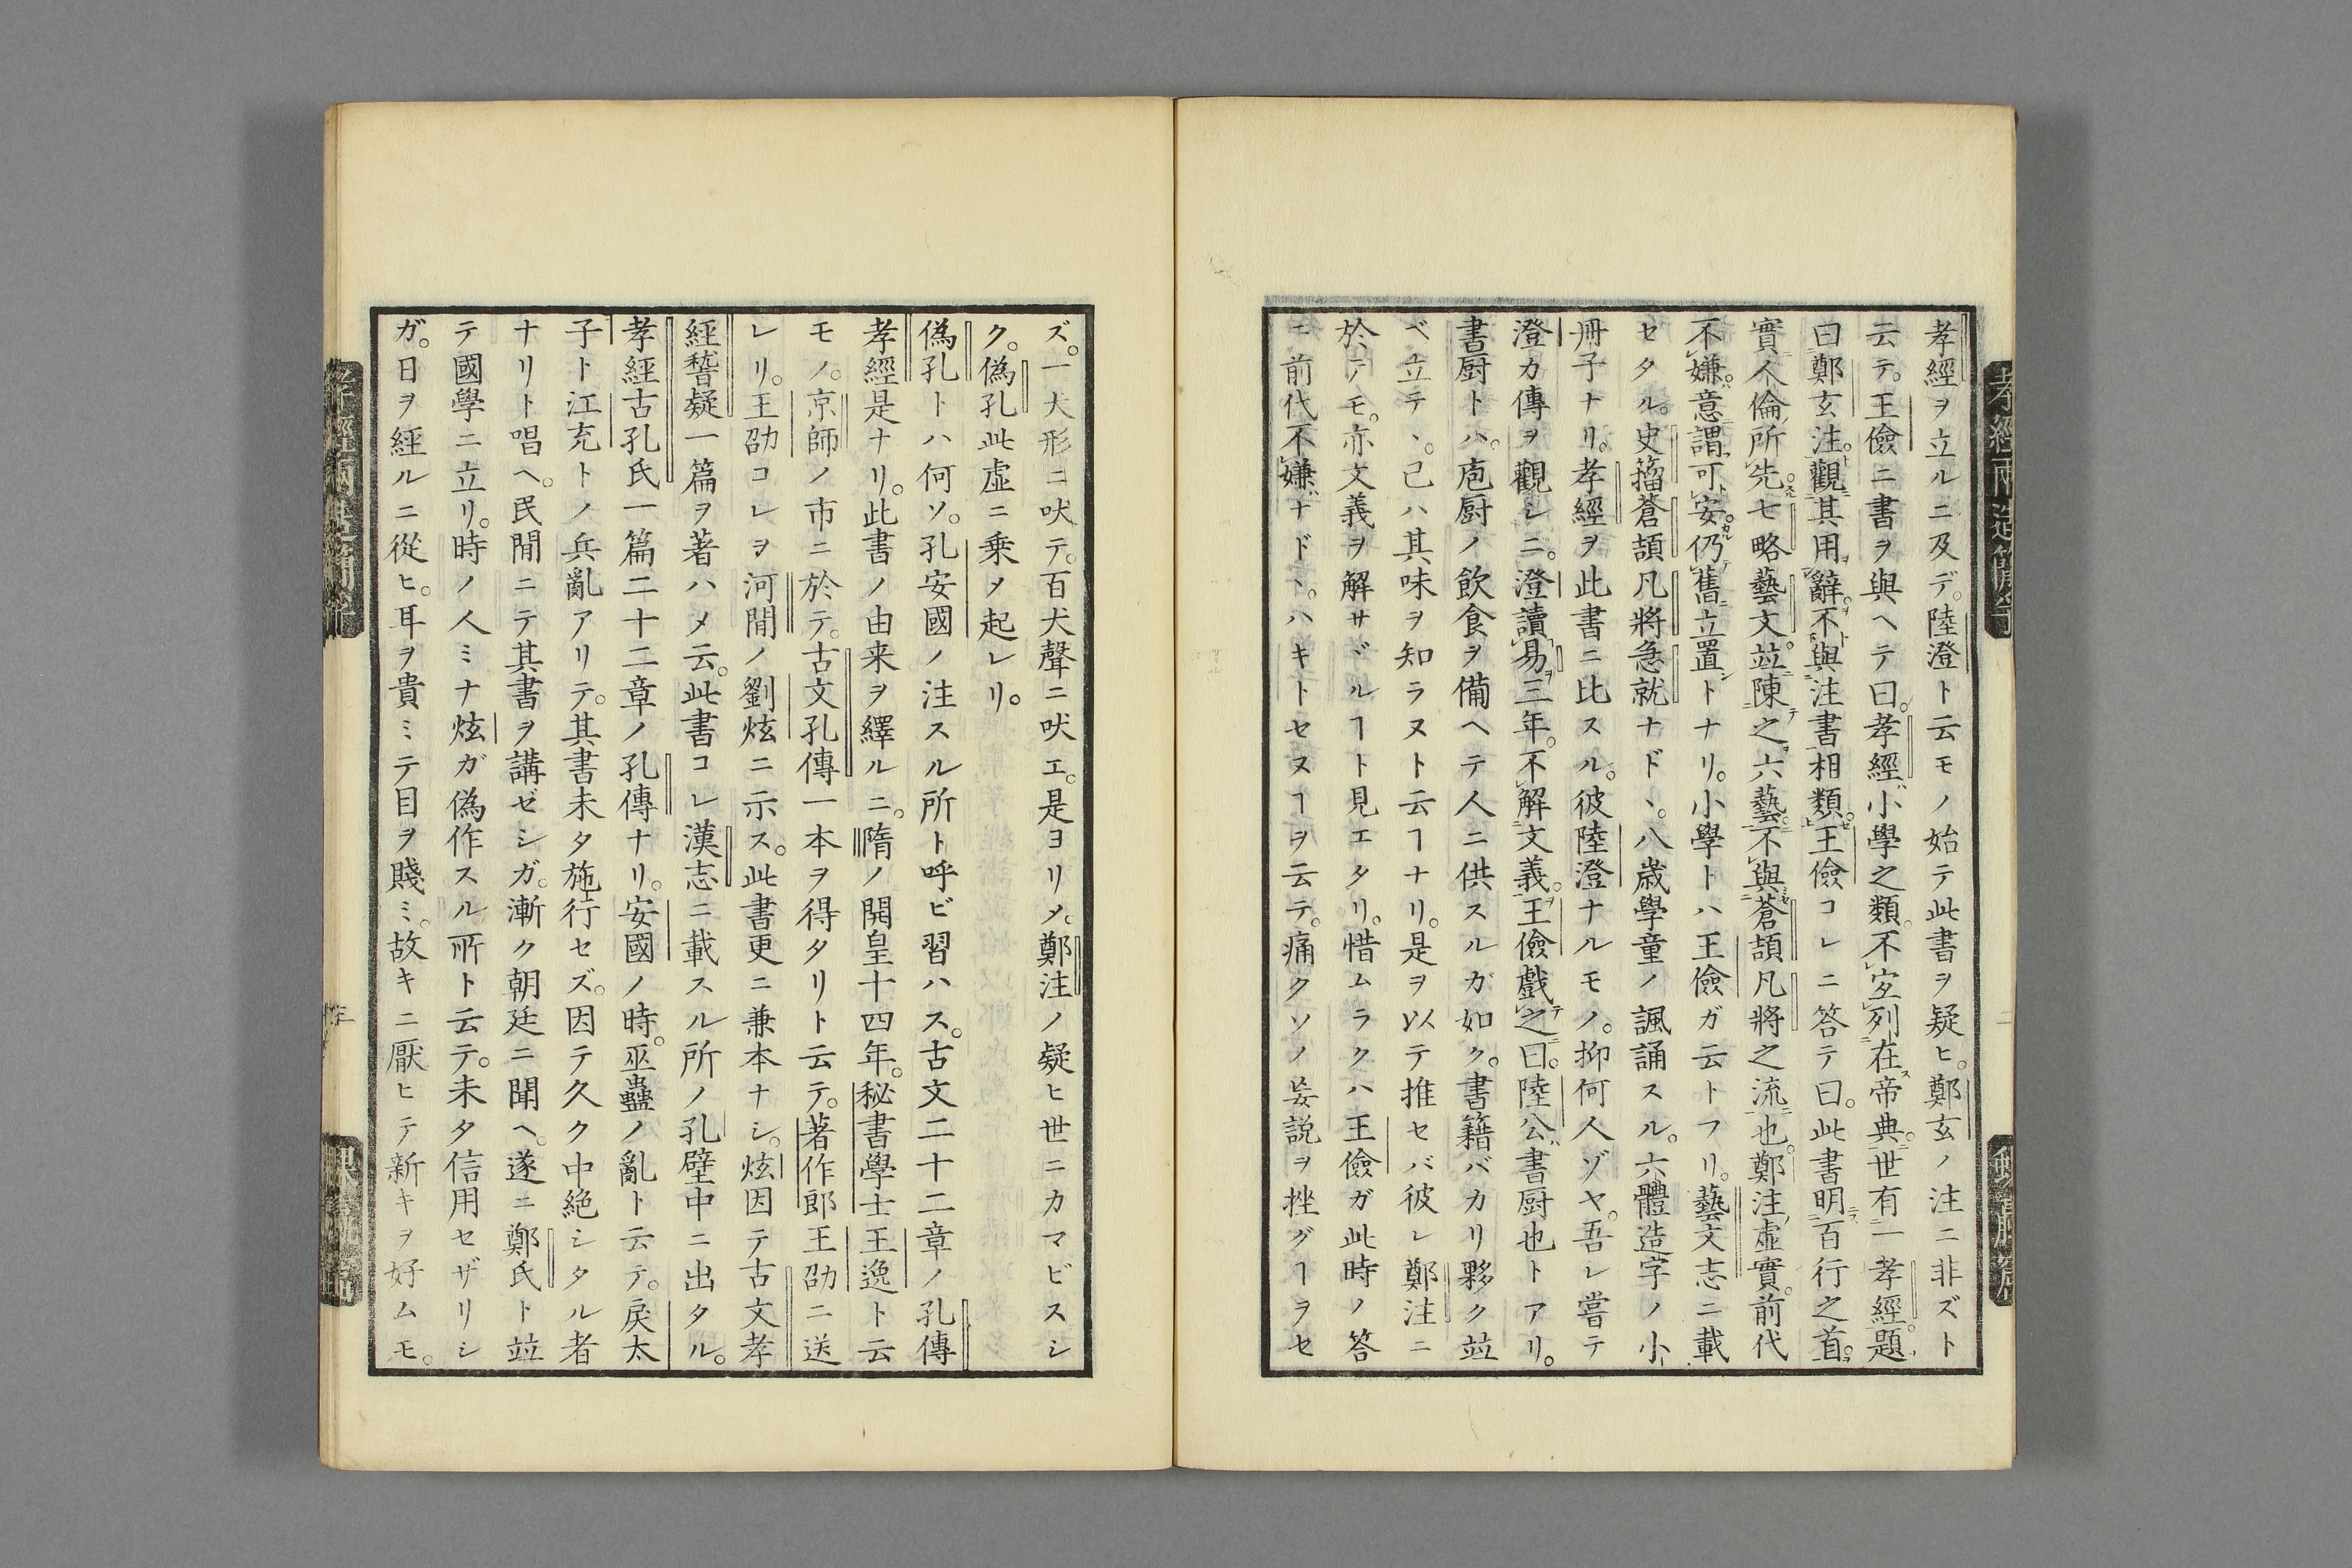 孝經ヲ立ルニ及デ。陸澄ト云モノ始テ此書ヲ疑ヒ。鄭玄ノ注ニ非ズト
云テ。王儉ニ書ヲ與ヘテ曰。孝經小學之類。不宜列在帝典。世有一孝經。題
曰鄭玄注。觀其用辭。不與注書相類。王儉コレニ答テ曰。此書明百行之首。
實人倫所先。七略藝文竝陳之六藝。不與蒼頡凡將之流也。鄭注虛實。前代
不嫌。意謂可安。仍舊立置トナリ。小學トハ王儉ガ云トフリ。藝文志ニ載
セタル。史籀蒼頡凡將急就ナドヽ。八歳學童ノ諷誦スル。六體造字ノ小
冊子ナリ。孝經ヲ此書ニ比スル。彼陸澄ナルモノ。抑何人ゾヤ。吾レ嘗テ
澄カ傳ヲ觀シニ。澄讀易三年。不解文義。王儉戲之曰。陸公書厨也トアリ。
書厨トハ。庖厨ノ飲食ヲ備ヘテ人ニ供スルガ如ク。書籍バカリ夥ク竝
ベ立テヽ。己ハ其味ヲ知ラヌト云ヿナリ。是ヲ以テ推セバ彼レ鄭注ニ
於テモ。亦文義ヲ解サヾルヿト見エタリ。惜ムラクハ王儉ガ此時ノ答
ニ前代不嫌ナドヽ。ハキトセヌヿヲ云テ。痛クソノ妄説ヲ挫グヿヲセ
ズ。一犬形ニ吠テ。百犬聲ニ吠エ。是ヨリ〆。鄭注ノ疑ヒ世ニカマビスシ
ク。偽孔此虛ニ乗〆起レリ。
偽孔トハ何ソ。孔安國ノ注スル所ト呼ビ習ハス。古文二十二章ノ孔傳
孝經是ナリ。此書ノ由来ヲ繹ルニ。隋ノ開皇十四年。秘書學士王逸ト云
モノ。京師ノ市ニ於テ。古文孔傳一本ヲ得タリト云テ。著作郎王劭ニ送
レリ。王劭コレヲ河間ノ劉炫ニ示ス。此書更ニ兼本ナシ。炫因テ古文孝
經稽疑一篇ヲ著ハ〆云。此書コレ漢志ニ載スル所ノ孔壁中ニ出タル。
孝經古孔氏一篇二十二章ノ孔傳ナリ。安國ノ時。巫蠱ノ亂ト云テ。戾太
子ト江充トノ兵亂アリテ。其書未タ施行セズ。因テ久ク中絶シタル者
ナリト唱ヘ。民間ニテ其書ヲ講ゼシガ。漸ク朝廷ニ聞ヘ。遂ニ鄭氏ト竝
テ國學ニ立リ。時ノ人ミナ炫ガ偽作スル所ト云テ。未タ信用セザリシ
ガ。日ヲ經ルニ從ヒ。耳ヲ貴ミテ目ヲ賤ミ。故キニ厭ヒテ新キヲ好ムモ。